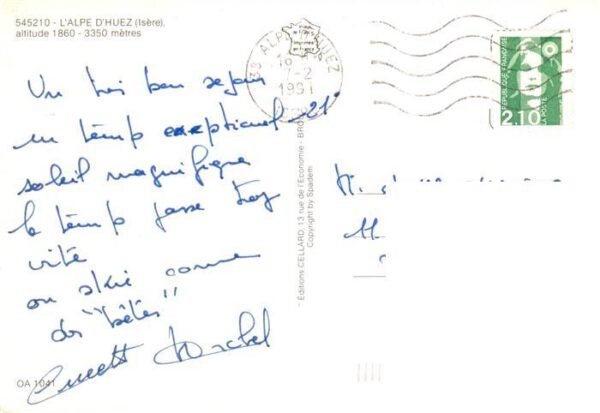 545210 - L'ALPE D'HUEZ (Isère).
altitude 1860 - 3350 mètres
38 ALPE D'HUEZ
7-2
1991
RÉPUBLIQUE FRANÇAISE
2,10
LA POSTE
Un très bon séjour
un temp exeptionnel 21°
soleil magnifique
le temp passe trop
vite
on skie comme
des "bêtes"
Editions CELLARD, 13 rue de l'Economie - BRON
Copyright by Spadem
OA 1041